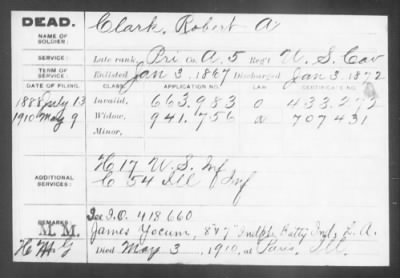 DEAD.
NAME OF SOLDIER:
Clark, Robert A
SERVICE:
Late rank, Pri Co. A, 5 Reg't U.S. Cav
TERM OF SERVICE:
Enlisted Jan 3, 1867 Discharged Jan 3, 1872
DATE OF FILING. CLASS. APPLICATION NO. LAW. CERTIFICATE NO.
1888 July 13 Invalid, 663.983 433.272
1910 May 9 Widow, 941.756 a 707431
Minor,
ADDITIONAL SERVICES:
H 17 U.S. Inf
C 54 Ill Inf
REMARKS:
M M
See I.O. 418660
James Yocum, Ind,
Died May 3, 1910, at Paris, Ill.